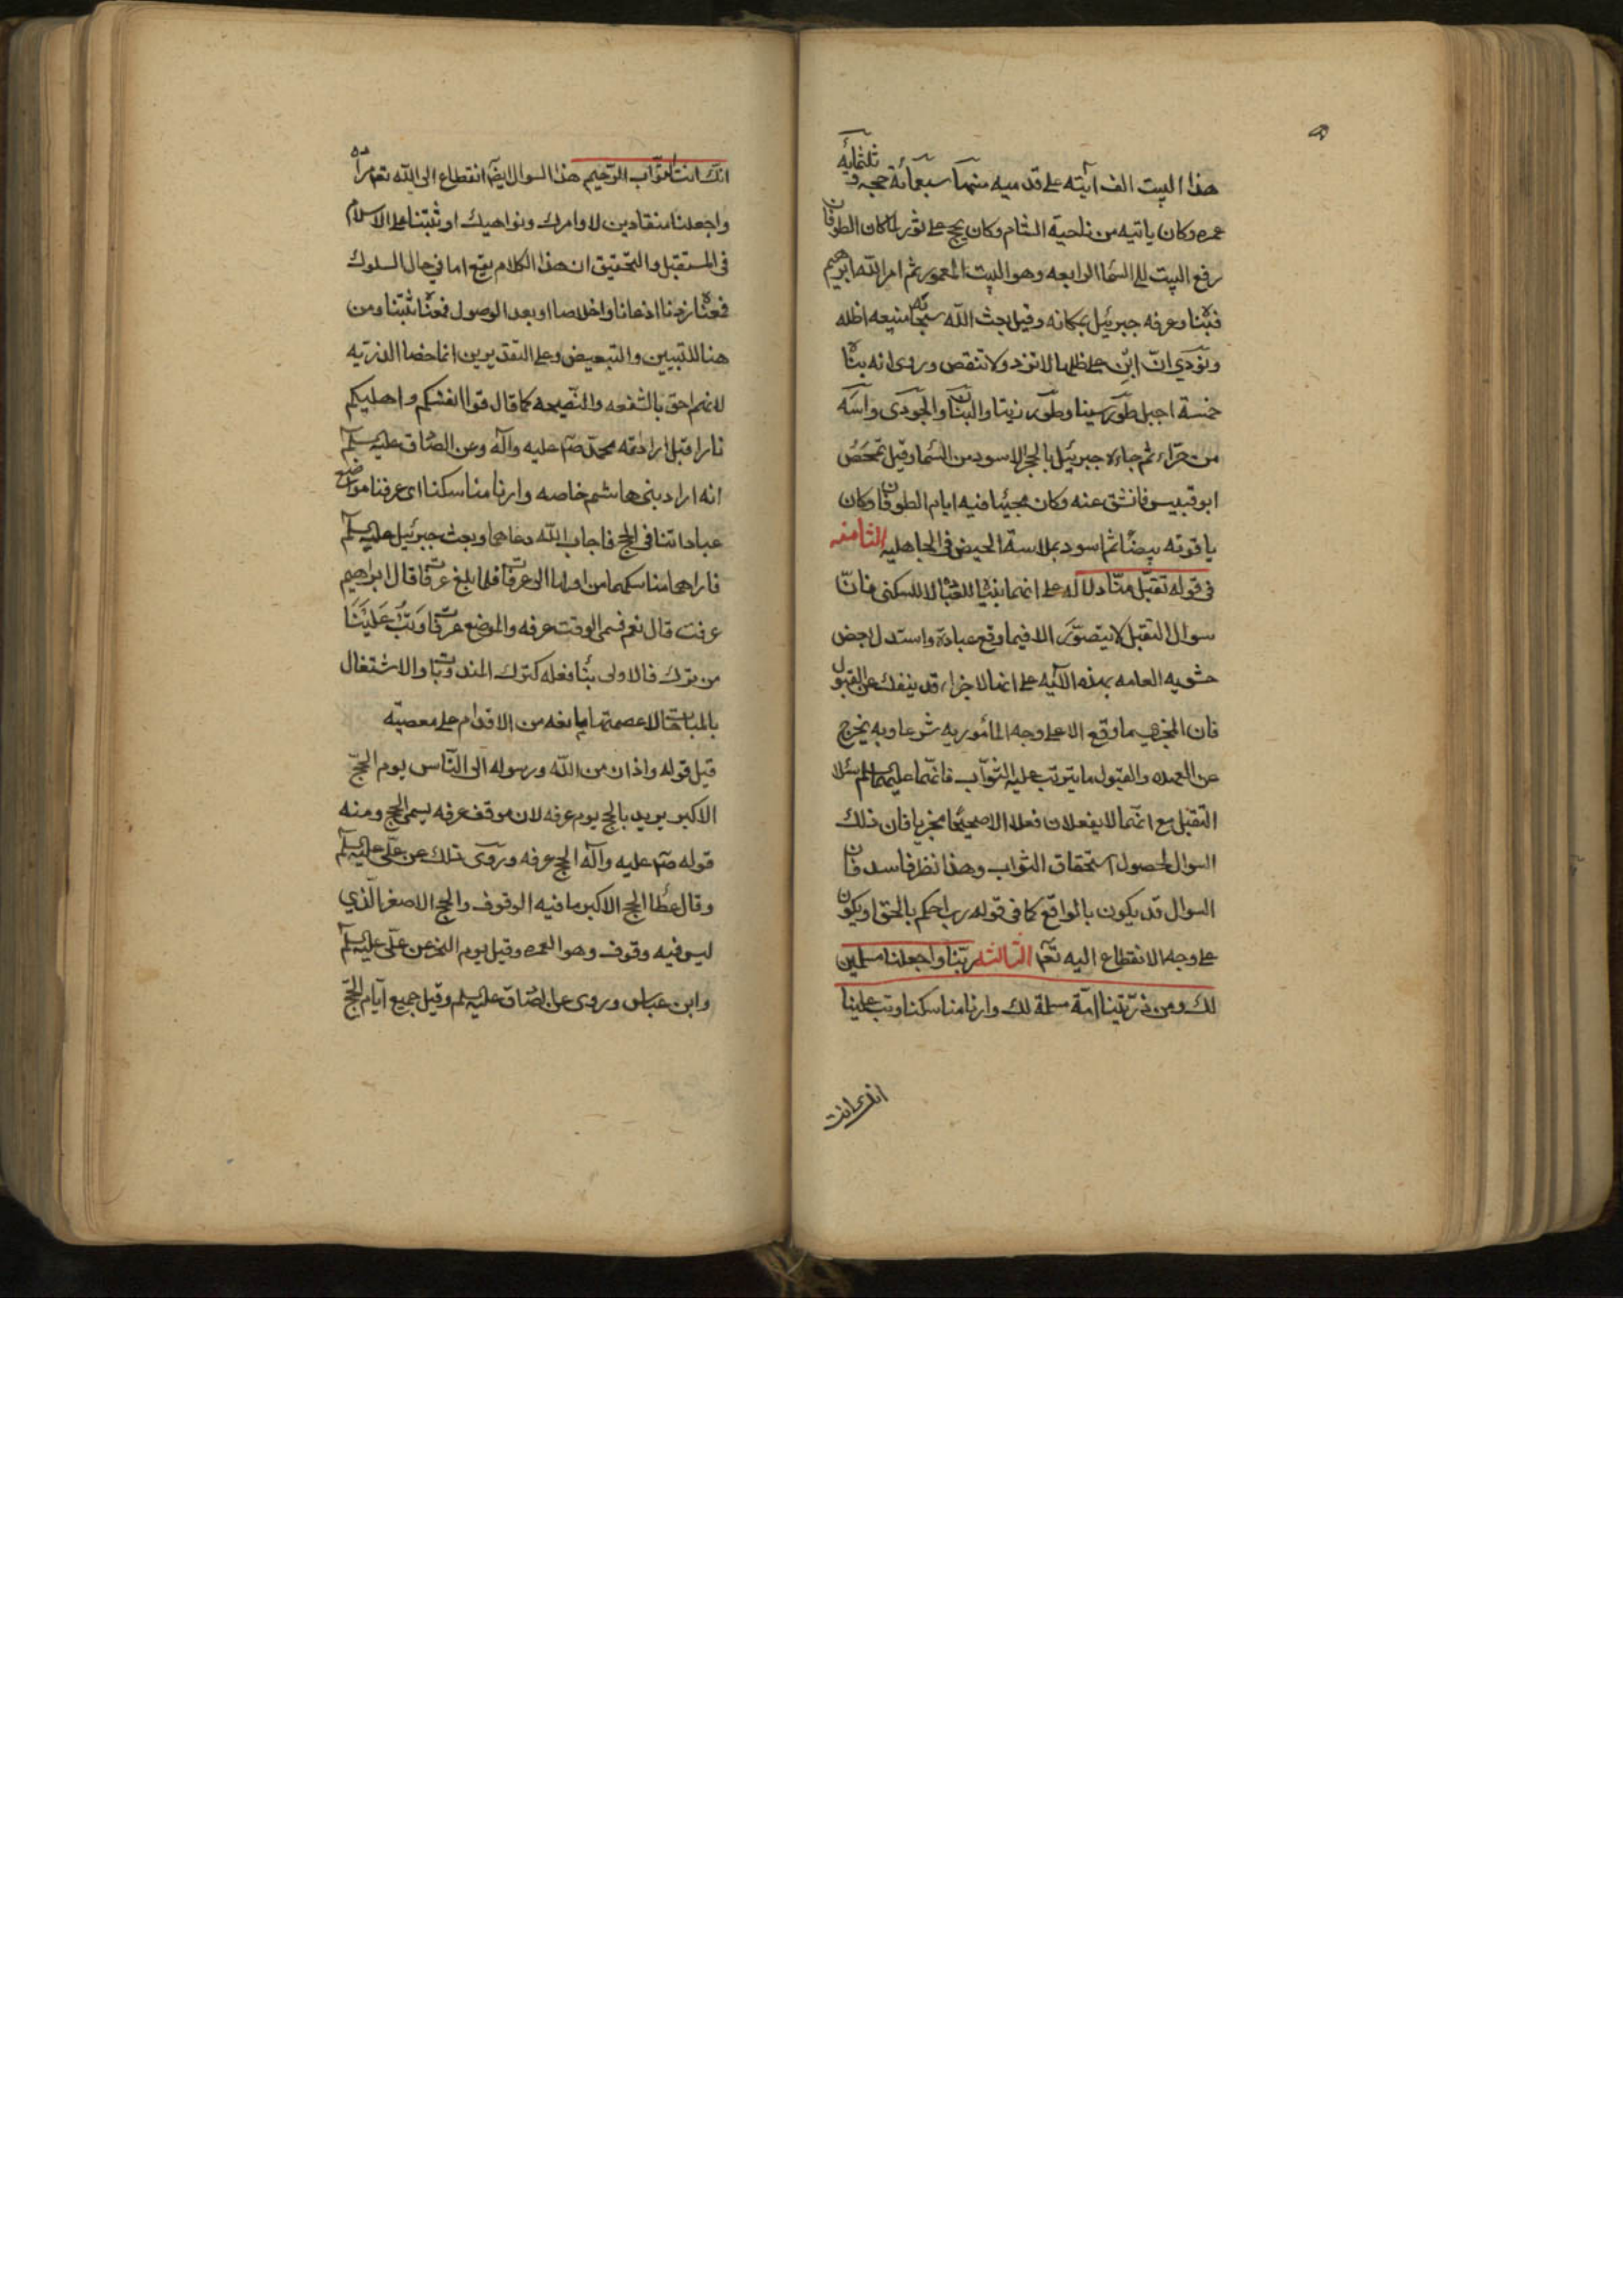 هذا البيت الف اتيه على قدميه منها سبعمائة حجه و ثلثمايه
عمره وكان ياتيه من ناحية الشام وكان يحج على ثور لما كان الطوفان
رفع البيت الى السما الرابعه وهو البيت المعمور ثم امر الله ابرهيم
فبناه وعرفه جبرئيل بمكانه وقيل بعث الله سبحانه اظله
ونودي ان ابن على ظلها لا تزد ولا تنقص وروى انه بناه
خمسة اجبل طور سينا وطور زيتا والبنان والجودى واسه
من حراء ثم جاءه جبرئيل بالحجر الاسود من السما وقيل تمخض
ابو قبيس فانشق عنه وكان فيه ايام الطوفان وكان
ياقوته بيضا ثم اسود بملامسة الحيض فى الجاهليه الثامنه
فى قوله تقبل منا دلاله على انهما بنيا للعباده لا للسكنى فان
سوال التقبل لا يتصور الا فيما وقع عبادة واستدل بعض
حشويه العامه بهذه الآيه على انما الاجزاء قد ينفك عن القبول
فان المجزى ما وقع الا على وجه المأمور به شرعا وبه يخرج
عن العهده والقبول ما يترتب عليه الثواب فانهما عليهما السلم سئلا
التقبل مع انهما لا يفعلان فعلا الا صحيحا مجزيا فان ذلك
السوال لحصول استحقاق الثواب وهذا نظر فاسد فان
السوال قد يكون بالواقع كما فى قوله رب احكم بالحق او يكون
على وجه الانقطاع اليه تعا الثالثه ربنا واجعلنا مسلمين
لك ومن ذريتنا امة مسلمة لك وارنا مناسكنا وتب علينا
انك انت
انك انت التواب الرحيم هذا السوال ايضا انقطاع الى الله تعا
واجعلنا منقادين لاوامرك ونواهيك او ثبتنا على الاسلام
فى المستقبل والتحقيق ان هذا الكلام يقع اما في حال السلوك
فمعناه زدنا اذعانا واخلاصا او بعد الوصول فمعناه ثبتنا ومن
هنا للتبيين والتبعيض وعلى التقديرين انما خصا الذريه
لانهم احق بالشفعه والنصيحه كما قال قوا انفسكم واهليكم
نارا قيل اراد امة محمد صم عليه وآله وعن الصادق عليه السلم
انه اراد بنى هاشم خاصه وارنا مناسكنا اى عرفنا مواضع
عباداتنا فى الحج فاجاب الله دعاهما وبعث جبرئيل عليه السلم
فاراهما مناسكهما من اولها الى عرفات فلما بلغ عرفات قال ابراهيم
عرفت قال نعم فسمى الوقت عرفه والموضع عرفات وتب علينا
من ترك فالاولى بنا فعله كترك المندوبات والاشتغال
بالمباحات لا عصمتهما مانعه من الاقدام على معصيته
قيل قوله واذان من الله ورسوله الى الناس يوم الحج
الاكبر يريد بالحج يوم عرفه لان موقف عرفه يسمى الحج ومنه
قوله صم عليه وآله الحج عرفه وروى ذلك عن على عليه السلم
وقال عطا الحج الاكبر ما فيه الوقوف والحج الاصغر الذي
ليس فيه وقوف وهو العمره وقيل يوم النحر عن على عليه السلم
وابن عباس وروى عن الصادق عليه السلم وقيل جميع ايام الحج